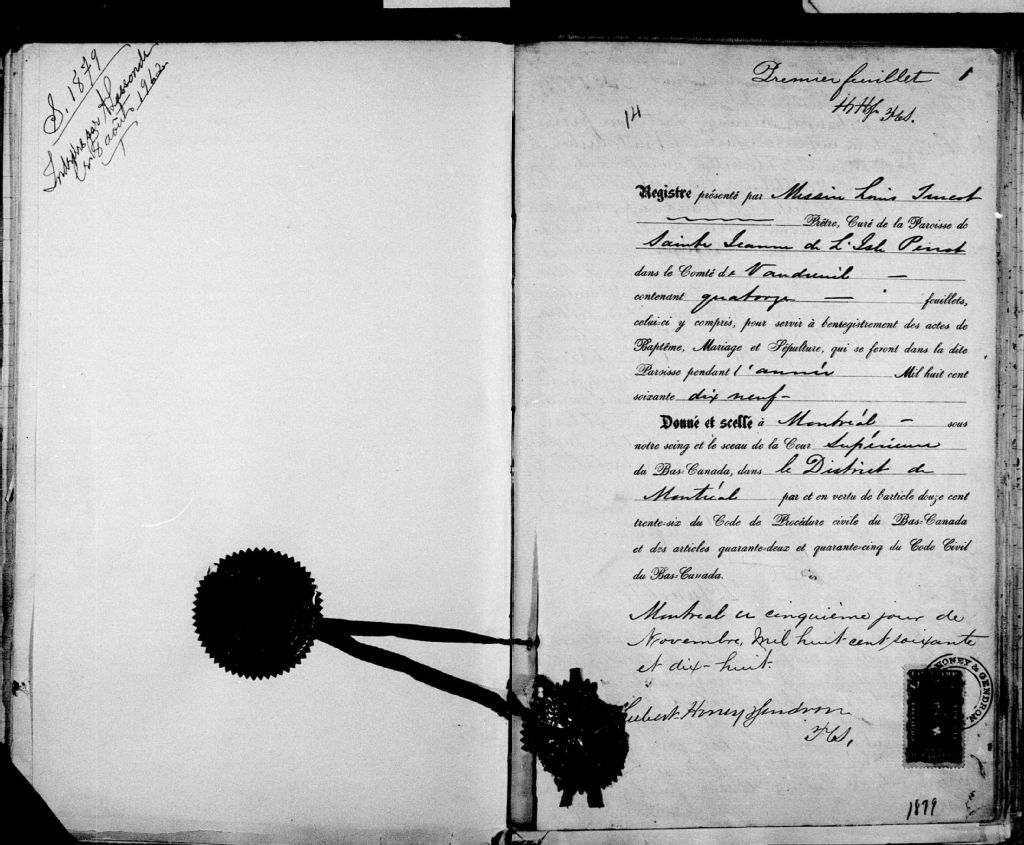 S. 1879
août 1962
Premier feuillet 1
HH&G
14
Registre présenté par Messire Louis Turcot
Prêtre, Curé de la Paroisse de
Sainte Jeanne de L'Isle Perrot
dans le Comté de Vaudreuil —
contenant quatorze — feuillets,
celui-ci y compris, pour servir à l'enregistrement des actes de
Baptême, Mariage et Sépulture, qui se feront dans la dite
Paroisse pendant l'année Mil huit cent
soixante dix neuf —
Donné et scellé à Montréal — sous
notre seing et le sceau de la Cour Supérieure
du Bas-Canada, dans le District de
Montréal par et en vertu de l'article douze cent
trente-six du Code de Procédure civile du Bas-Canada
et des articles quarante-deux et quarante-cinq du Code Civil
du Bas-Canada.
Montreal ce cinquième jour de
Novembre, Mil huit cent soixante
et dix-huit.
Hubert Honey Gendron
HONEY & GENDRON
1879